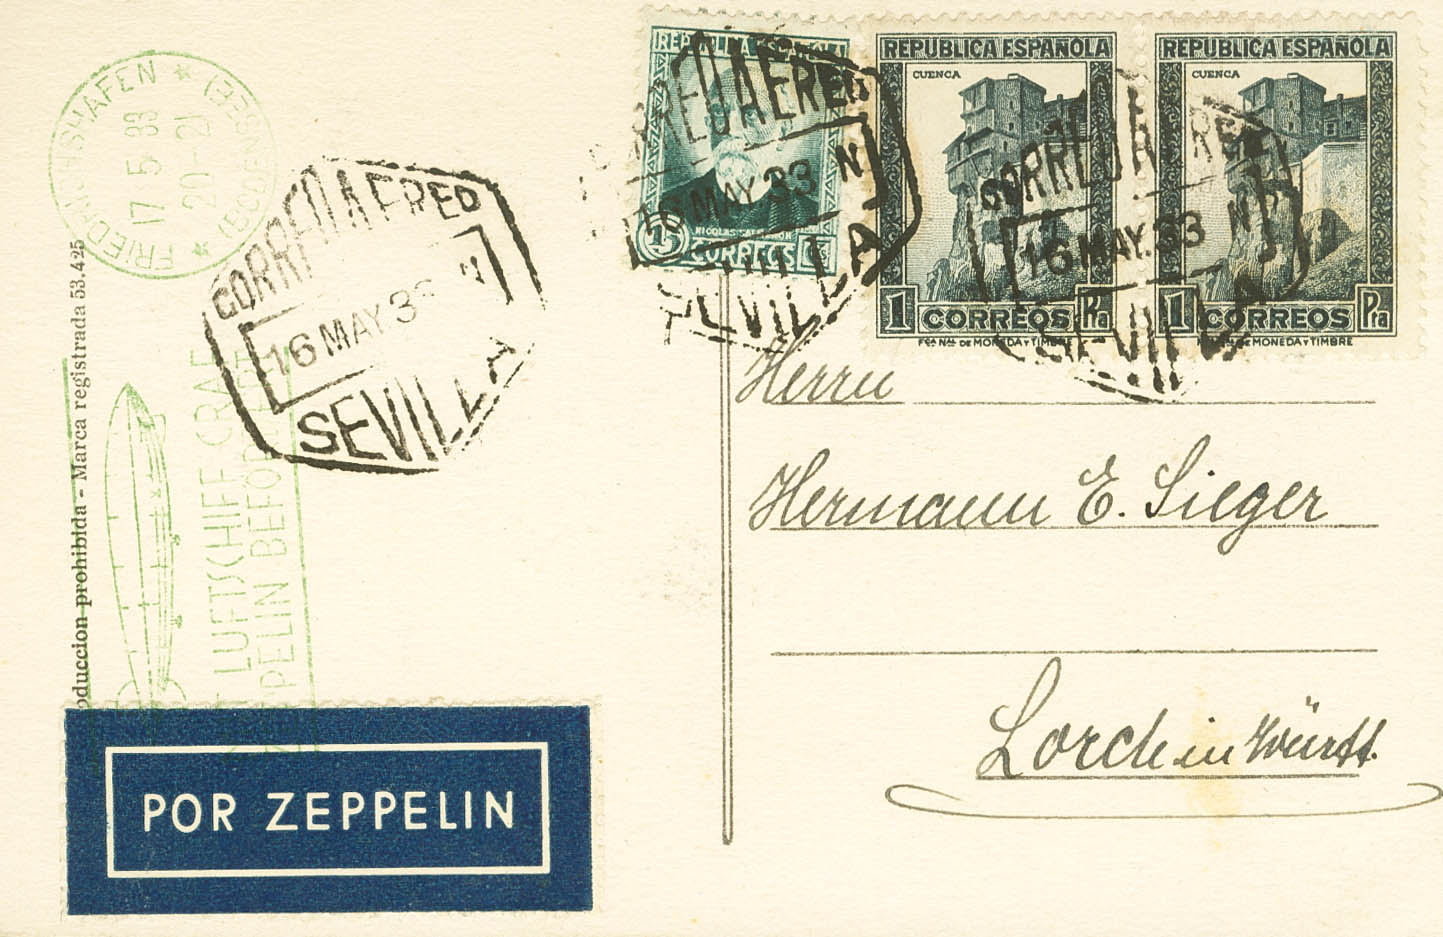 REPUBLICA ESPAÑOLA
NICOLAS SALMERON
15 CORREOS
REPUBLICA ESPAÑOLA
CUENCA
1 CORREOS Pta
Fca. Nal. DE MONEDA Y TIMBRE
REPUBLICA ESPAÑOLA
CUENCA
1 CORREOS Pta
DE MONEDA Y TIMBRE
CORREO AEREO
16 MAY. 33 N
SEVILLA
CORREO AEREO
16 MAY. 33 N
SEVILLA
CORREO AEREO
16 MAY 33 N
SEVILLA
FRIEDRICHSHAFEN
17 5 33
20-21
(BODENSEE)
LUFTSCHIFF GRAF
ZEPPELIN BEFÖRDERT
oduccion prohibida - Marca registrada 53.425
Herrn
Hermann E. Sieger
Lorch in Württ.
POR ZEPPELIN